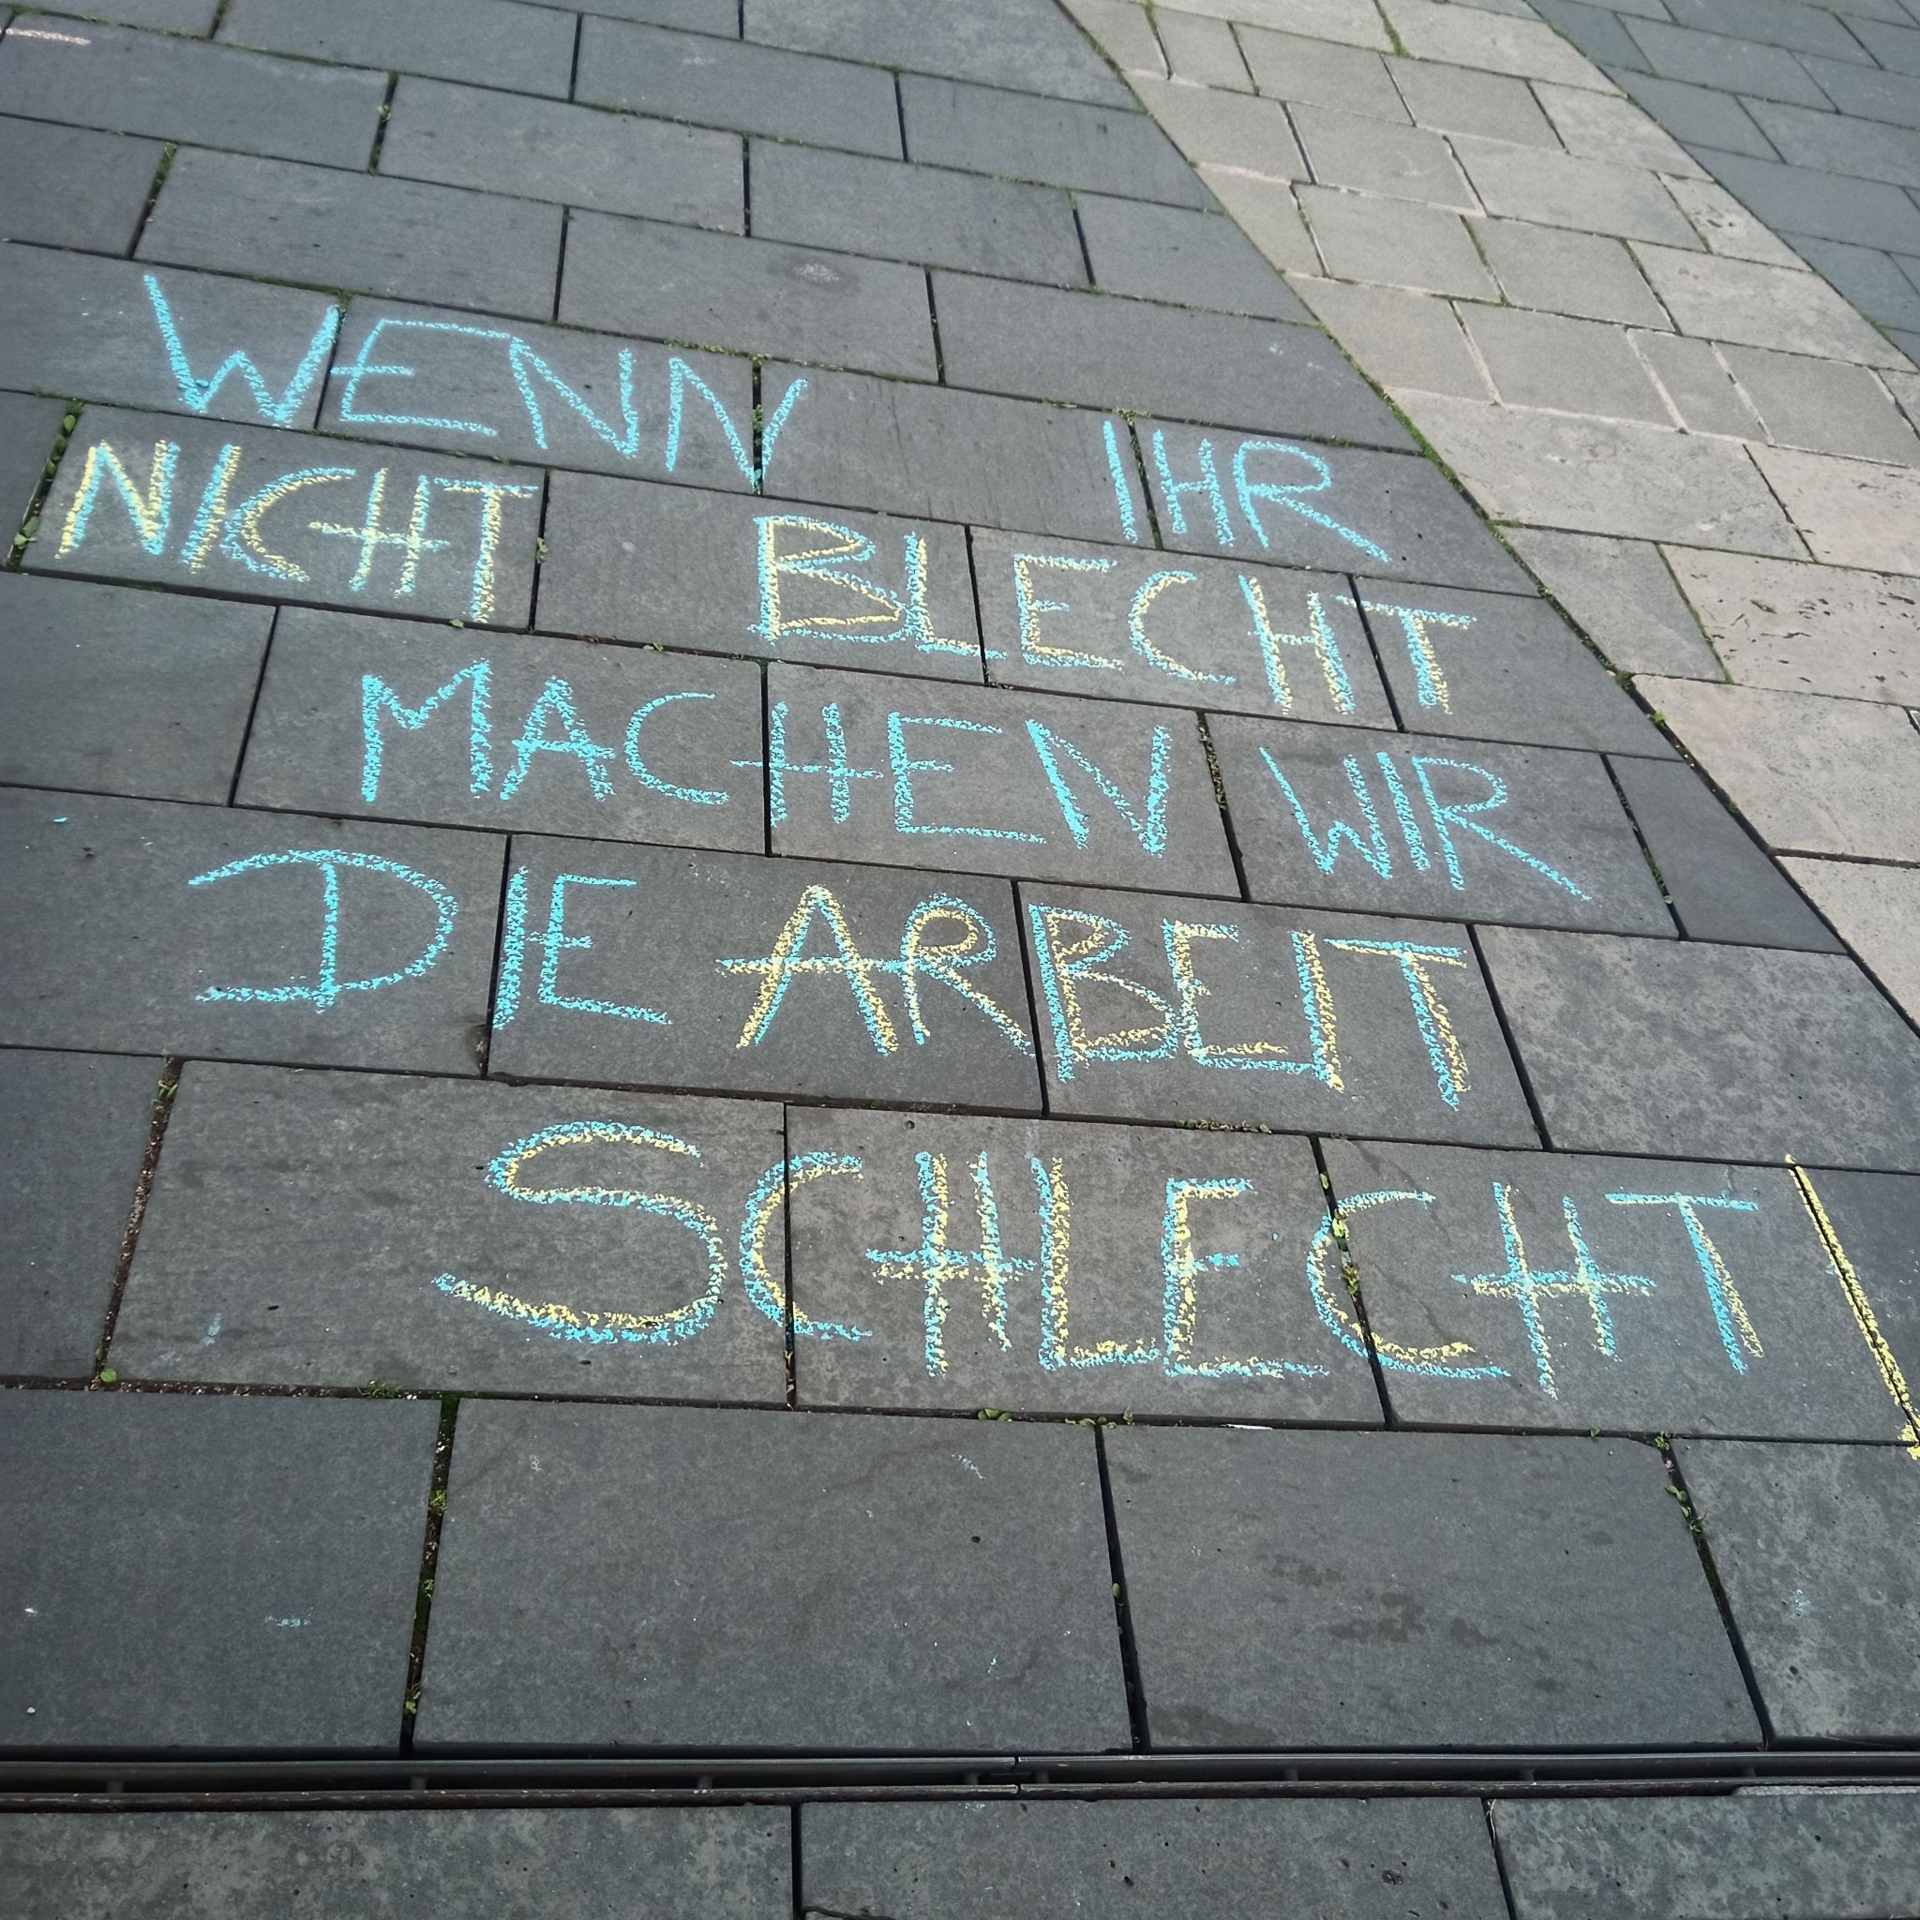 WENN IHR
NICHT BLECHT
MACHEN WIR
DIE ARBEIT
SCHLECHT!